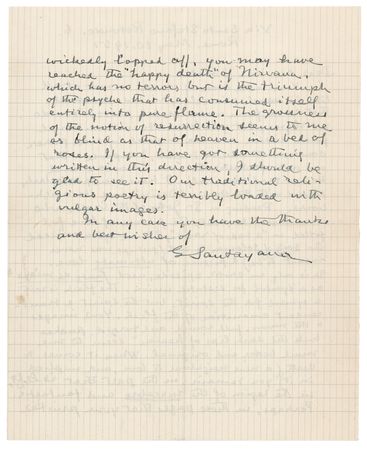 wickedly lopped off, you may have
reached the "happy death" of Nirvana,
which has no terrors but is the triumph
of the psyche that has consumed itself
entirely into pure flame. The grossness
of the notion of resurrection seems to me
as blind as that of heaven in a bed of
roses. If you have got something
written in this direction, I should be
glad to see it. Our traditional reli-
gious poetry is terribly loaded with
vulgar images.
In any case you have the thanks
and best wishes of
G Santayana